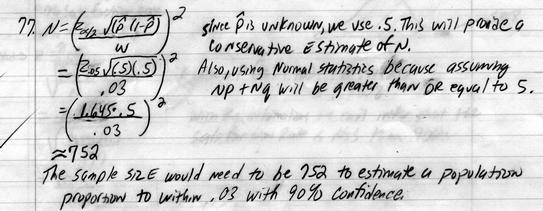 77. N = (Zα/2 √(p̂ (1-p̂) / W)² since p̂ is unknown, we use .5. This will provide a
conservative Estimate of N.
= (Z.05 √(.5)(.5) / .03)² Also, using Normal statistics because assuming
NP + Nq will be greater than OR equal to 5.
= (1.645 · .5 / .03)²
≈ 752
The sample size would need to be 752 to estimate a population
proportion to within .03 with 90% confidence.